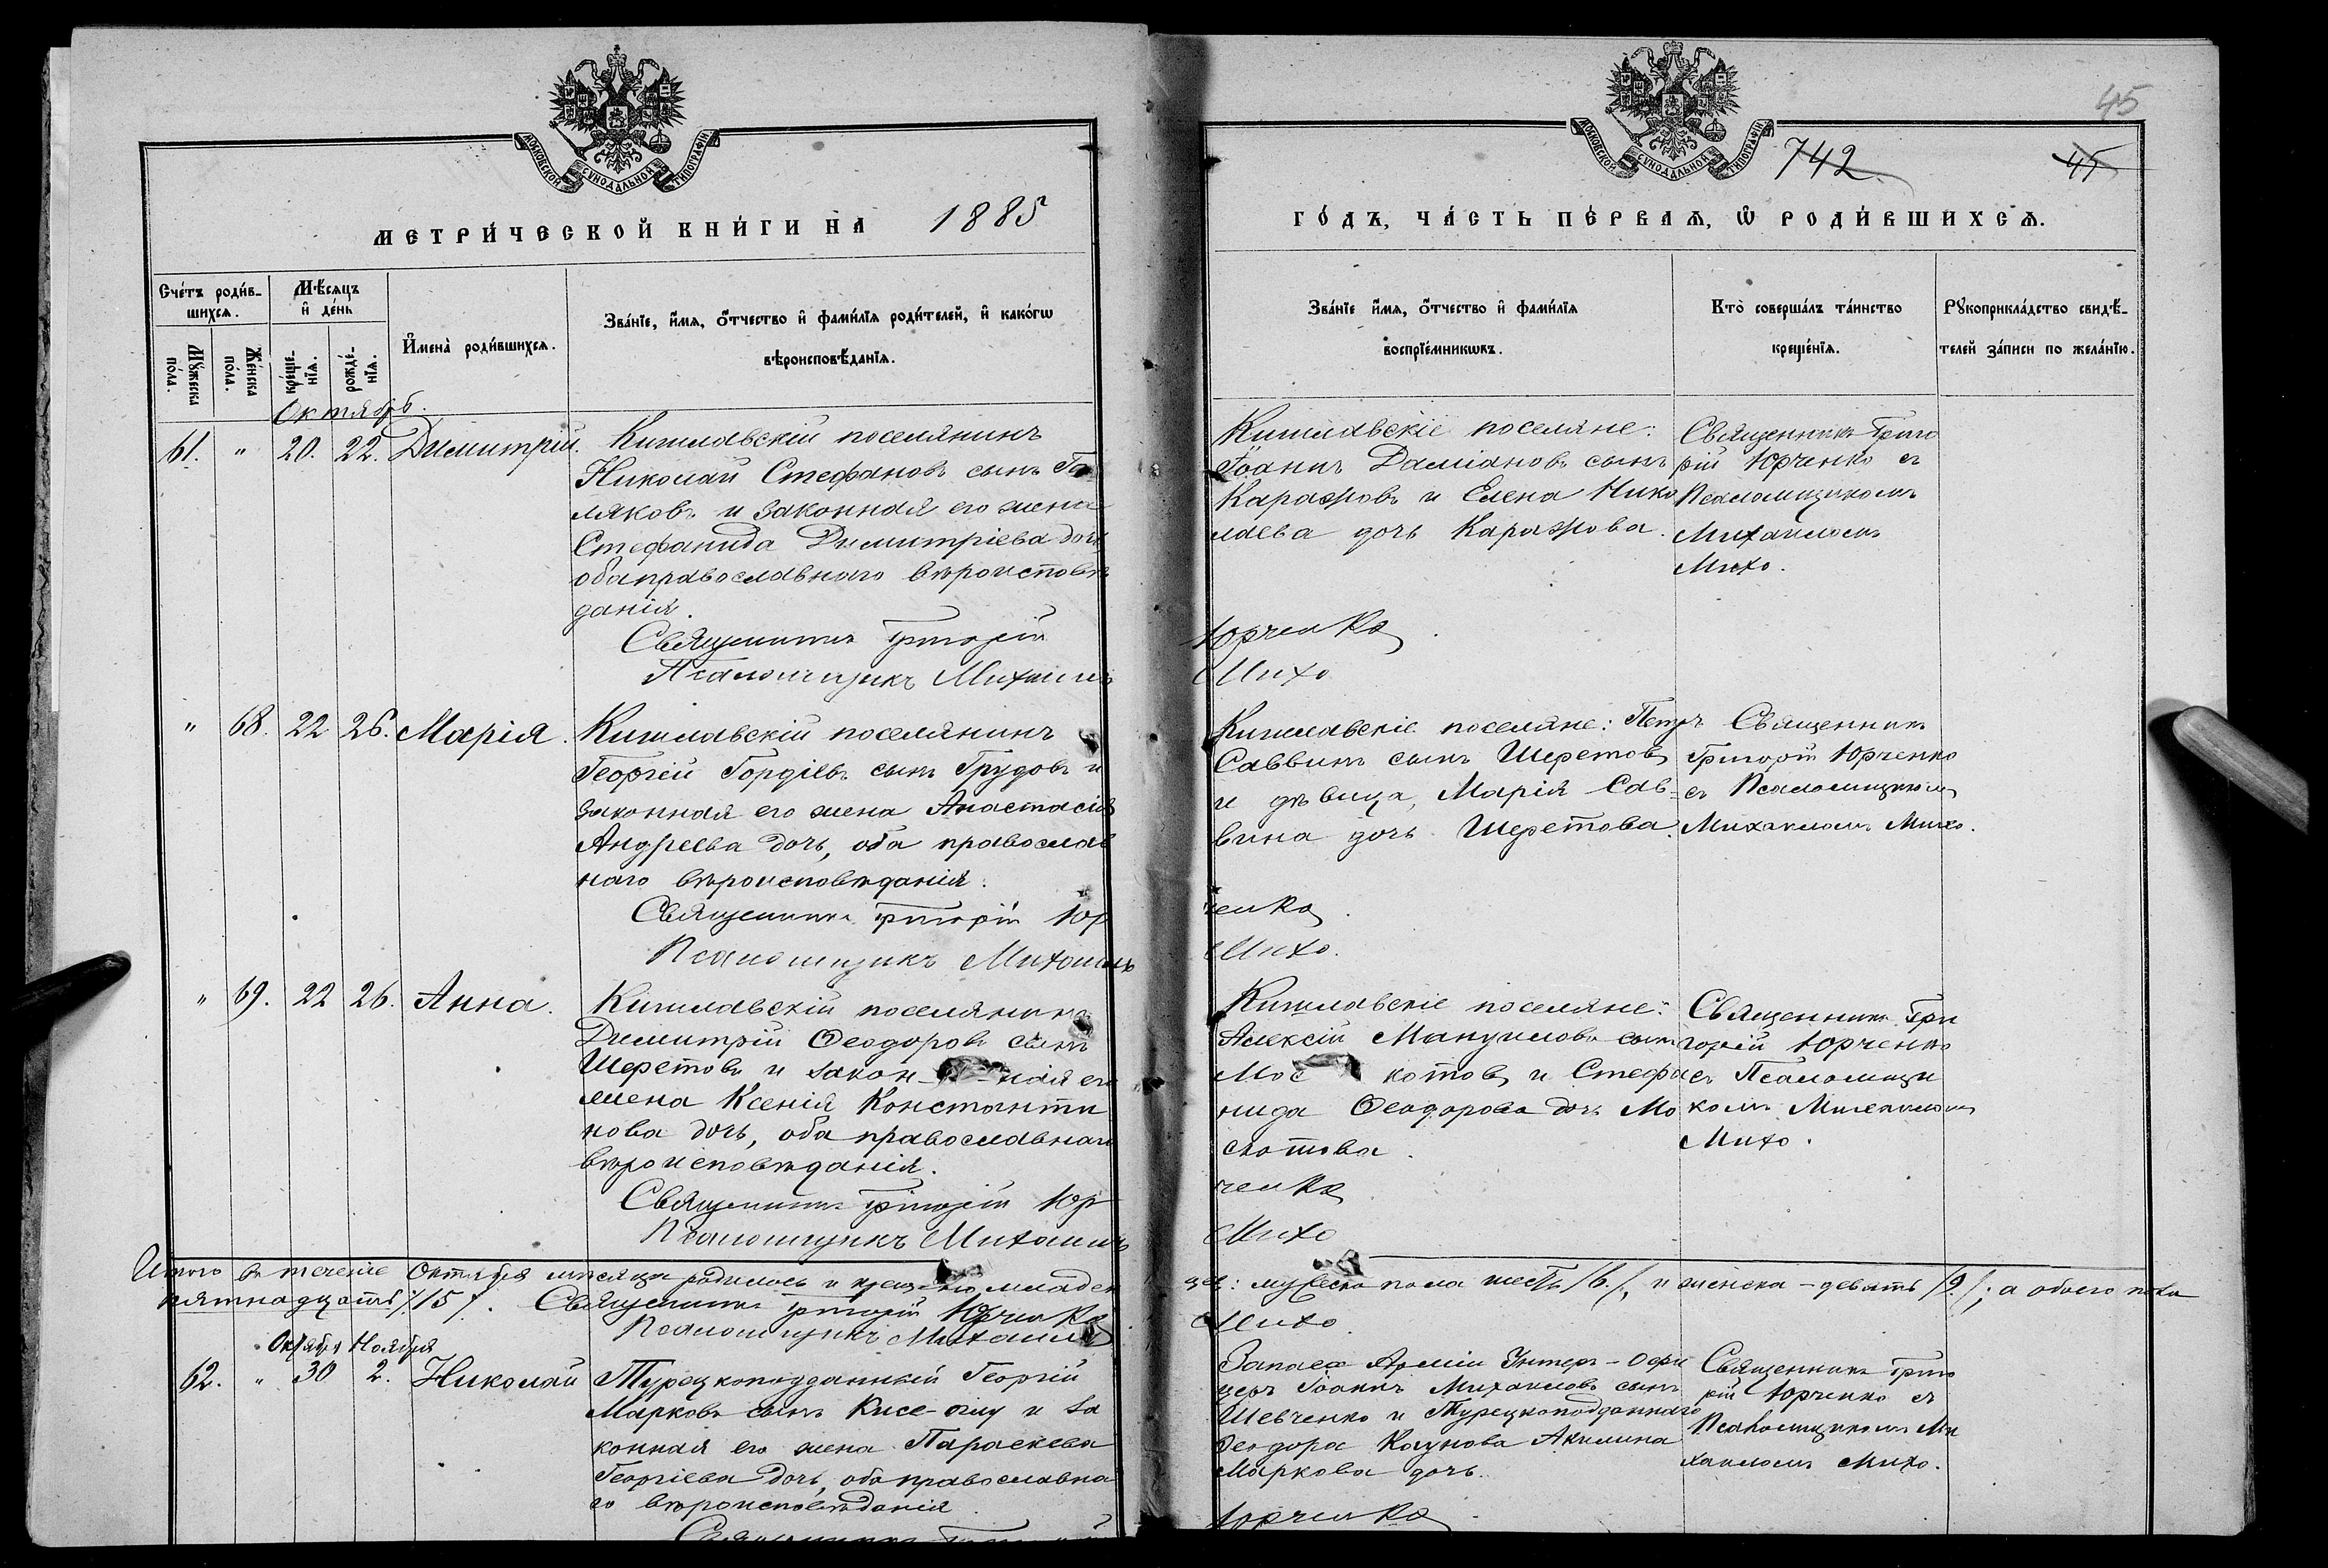 45
742.
45
МОСКОВСКОЙ СУНОДАЛЬНОЙ ТИПОГРАФІИ
МОСКОВСКОЙ СУНОДАЛЬНОЙ ТИПОГРАФІИ
МЕТРИ́ЧЕСКОЙ КНИ́ГИ НА 1885
ГО́ДЪ, ЧА́СТЬ ПЕ́РВАѦ, Ѡ РОДИ́ВШИХСѦ.
Сче́тъ роди́в-
шихсѧ.
Мѣ́сѧцъ
и҆ де́нь
Мꙋ́жеска
по́ла.
Же́нска
по́ла.
креще-
нїѧ.
рожде́-
нїѧ.
И҆мена̀ роди́вшихсѧ.
Зва́нїе, и҆́мѧ, ѻ҆́тчество и҆ фами́лїѧ роди́телей, и҆ како́гѡ
вѣроисповѣ́данїѧ.
Зва́нїе и҆́мѧ, ѻ҆́тчество и҆ фами́лїѧ
воспрїе́мникѡвъ.
Кто̀ соверша́лъ та́инство
креще́нїѧ.
Рꙋкоприкла́дство свидѣ́-
телей за́писи по жела́нїю.
Октябрь.
61. " 20. 22. Димитрій.
Кишлавскій поселянинъ
Николай Стефановъ сынъ Га
ляковъ и законная его жена
Стефанида Димитріева дочь
оба православнаго вѣроисповѣ
данія.
Священникъ Григорій
Псаломщикъ Михаилъ
Кишлавскіе поселяне:
Іоаннъ Даміановъ сынъ
Каражовъ и Елена Нико
лаева дочь Каражова.
Священникъ Григо
рій Юрченко съ
Псаломщикомъ
Михаиломъ
Михо.
Юрченко
Михо
" 68. 22 26. Марія.
Кишлавскій поселянинъ
Георгій Гордіевъ сынъ Грудовъ и
законная его жена Анастасія
Андреева дочь, оба православ
наго вѣроисповѣданія.
Священникъ Григорій Юр
Псаломщикъ Михаилъ
Кишлавскіе поселяне: Петръ
Саввинъ сынъ Шеретовъ
и дѣвица, Марія Сав-
вина дочь Шеретова.
Священникъ
Григорій Юрченко
съ Псаломщикомъ
Михаиломъ Михо.
ченко
Михо.
" 69. 22 26. Анна.
Кишлавскій поселянинъ
Димитрій Ѳеодоровъ сынъ
Шеретовъ и закон-ная его
жена Ксенія Константи
нова дочь, оба православнаго
вѣроисповѣданія.
Священникъ Григорій Юр
Псаломщикъ Михаилъ
Кишлавскіе поселяне:
Алексій Мануиловъ сынъ
Мос котовъ и Стефа
нида Ѳеодорова дочь Мо
скотова.
Священникъ Гри
горій Юрченко
съ Псаломщи
комъ Михаиломъ
Михо.
ченко
Михо
Итого въ теченіе Октября мѣсяца родилось и крещено младен
цев: мужеска пола шесть /6./, и женска - девять /9./; а обоего пола
пятнадцать /15/. Священникъ Григорій Юрченко
Псаломщикъ Михаилъ
Михо.
Октября Ноября
62. " 30 2. Николай
Турецкоподданный Георгій
Марковъ сынъ Кисе-оглу и за
конная его жена Параскева
Георгіева дочь, оба православна
го вѣроисповѣданія.
Запаса Арміи Унтеръ-офи
церъ Іоаннъ Михаиловъ сынъ
Шевченко и Турецкоподданнаго
Ѳеодора Каунова Акилина
Маркова дочь.
Священникъ Григо
рій Юрченко съ
Псаломщикомъ Ми
хаиломъ Михо.
Юрченко